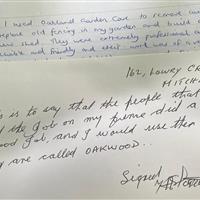 I used Oakland Garden Care to remove and
replace old fencing in my garden and build a
new shed. They were extremely professional,
reliable and friendly and their work was of a
162, LOWRY CR
MITCH
is is to say that the people that
d the Job on my fence did a
ood Job, and I would use them
y are called OAKWOOD..
Signed